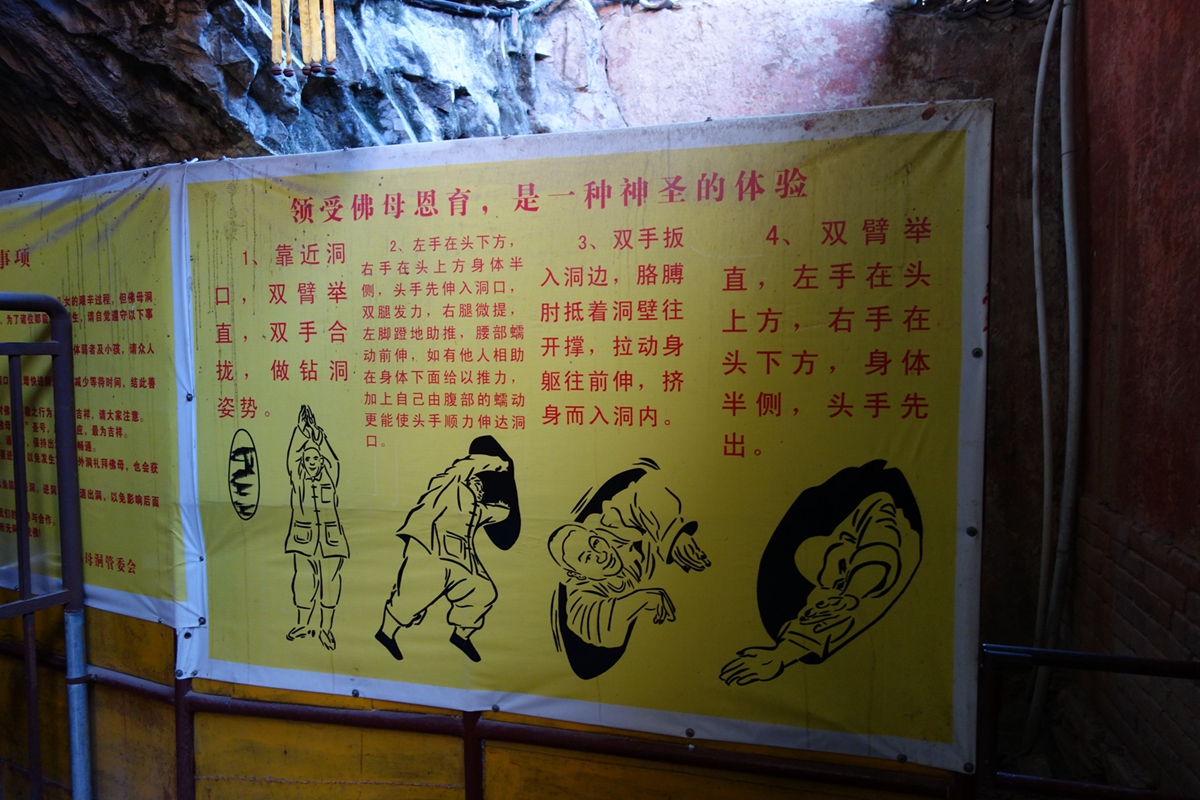 事项
的艰辛过程，但佛母洞
，为了诸位都能
生，请自觉遵守以下事
体弱者及小孩，请众人
减少等待时间，结此善
之行为
吉祥，请大家注意。
圣号，
应，最为吉祥。
保持出
畅通。
以免发生
外洞礼拜佛母，也会获
道出洞，以免影响后面
与合作。
母洞管委会
领受佛母恩育，是一种神圣的体验
1、靠近洞
口，双臂举
直，双手合
拢，做钻洞
姿势。
2、左手在头下方，
右手在头上方身体半
侧，头手先伸入洞口，
双腿发力，右腿微提，
左脚蹬地助推，腰部蠕
动前伸，如有他人相助
在身体下面给以推力，
加上自己由腹部的蠕动
更能使头手顺力伸达洞
口。
3、双手扳
入洞边，胳膊
肘抵着洞壁往
开撑，拉动身
躯往前伸，挤
身而入洞内。
4、双臂举
直，左手在头
上方，右手在
头下方，身体
半侧，头手先
出。